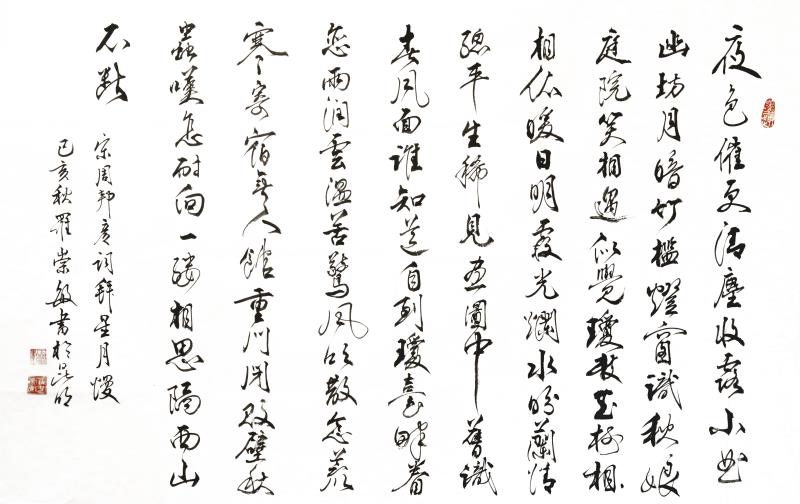 夜色催更清塵收露小曲
幽坊月暗竹檻燈窗識秋娘
庭院笑相遇似覺瓊枝玉樹相
相依暖日明霞光爛水盼蘭情
總平生稀見畫圖中舊識
春風面誰知道自到瓊臺畔眷
戀雨潤雲溫苦驚風吹散念荒
寒々寄宿無人館重門閉敗壁秋
蟲嘆怎耐向一縷相思隔西山
不斷
宋周邦彥詞拜星月慢
己亥秋羅崇敏書於昆明